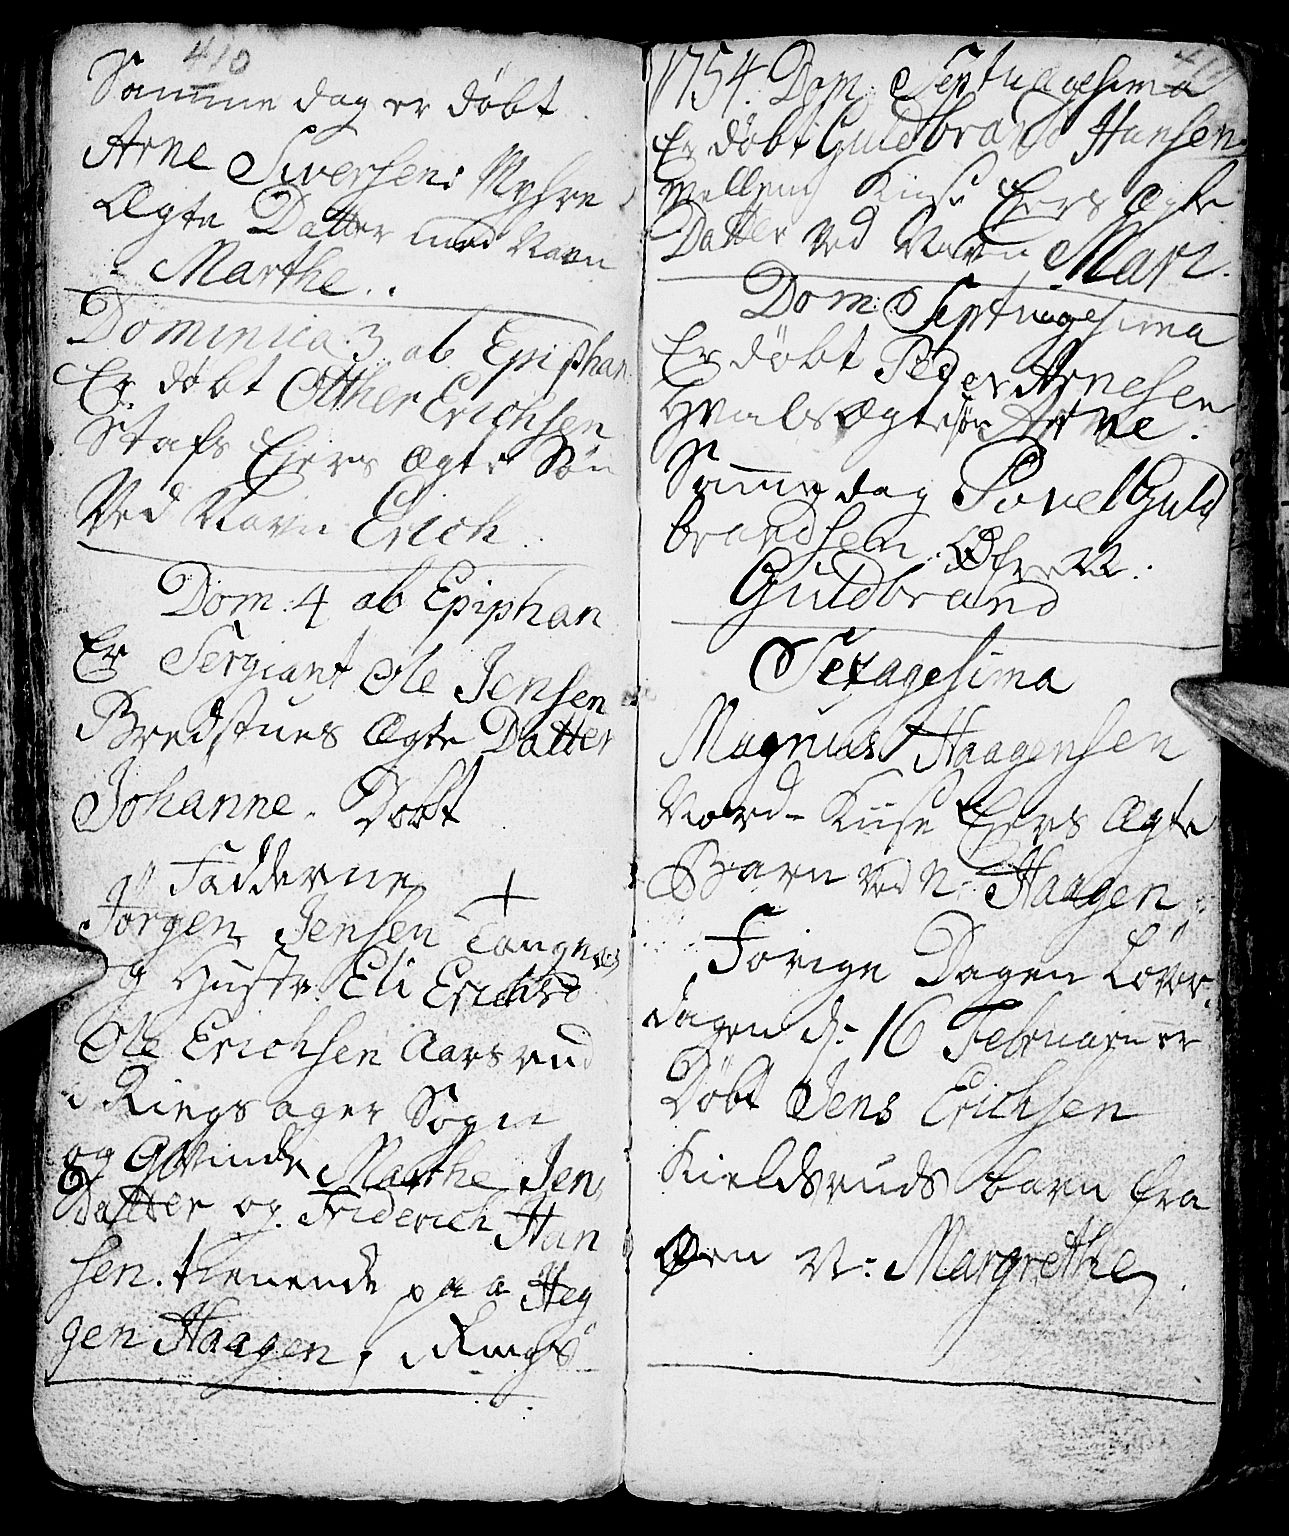 410
Samme dag er døbt
Arne Siversen: Myhre
Ægte Datter med Navn
Marthe..
Dominica 3 ab Epiphan
Er døbt Otther Erichsen
Stafs Eiers Ægte Søn
Ved Navn Erich.
Dom. 4 ab Epiphan
Er Sergiant Ole Jensen
Bredstues Ægte Datter
Johanne. Døbt
Fadderne
Jørgen Jensen Tangnes
og Hustr. Eli Erichsd
Ole Erichsen Aarsrud
i Ringsager Sogn
og Qvinde Marthe Jens
Datter og Friderich Han
sen. tienende paa Heg
gen Haagen, Rings
411
1754. Dom. Septuagesima
Er døbt Guldbrand Hansen
Mellem Kiise Eiers Ægte
Datter Ved Navn Mari.
Dom. Septuagesima
Er døbt Peder Arnesen
Hvals Ægte søn Arne.
Samme dag Povel Guld
brandsen N.
Guldbrand
Sexagesima
Magnus Haagensen
Nord-Kiise Eiers Ægte
Barn ved N: Haagen
Forige Dagen Løver
dagen d: 16 Februari er
Døbt Jens Erichsen
Kieldsruds barn fra
Øen N: Margrethe